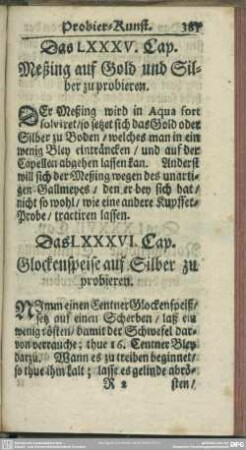 Probier-Kunst. 387
Das LXXXV. Cap.
Meßing auf Gold und Sil-
ber zu probieren.
DEr Meßing wird in Aqua fort
solvirt/ so setzet sich das Gold oder
Silber zu Boden / welches man in ein
wenig Bley einträncken / und auf der
Capellen abgehen lassen kan. Anderst
will sich der Meßing wegen des unarti-
gen Gallmeyes / den er bey sich hat /
nicht so wohl / wie eine andere Kupffer-
Probe / tractiren lassen.
Das LXXXVI. Cap.
Glockenspeise auf Silber zu
probieren.
NImm einen Centner Glockenspeiß /
setz auf einen Scherben / laß ein
wenig rösten / damit der Schwefel dar-
von verrauche; thue 16. Centner Bley
darzu. Wann es zu treiben beginnet /
so thue ihm kalt; lasse es gelinde abrö-
R 2 sten /